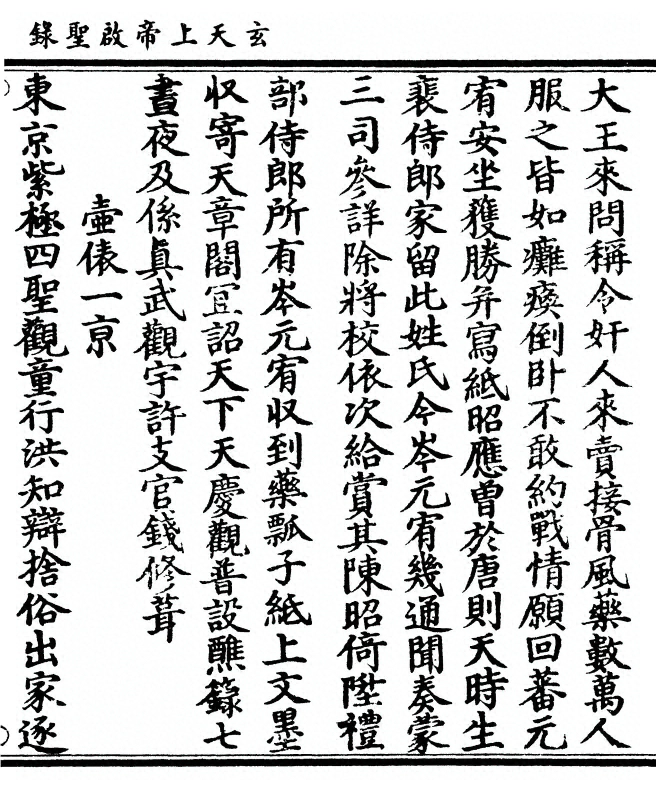 玄天上帝啟聖錄
大王來問稱令奸人來賣接骨風藥數萬人
服之皆如癱瘓倒卧不敢約戰情願回蕃元
宥安坐獲勝并寫紙昭應曽於唐則天時生
裵侍郎家留此姓氏今岑元宥幾通聞奏蒙
三司參詳除將校依次給賞其陳昭倚陞禮
部侍郎所有岑元宥収到藥瓢子紙上文墨
収寄天章閣冝詔天下天慶觀普設醮籙七
晝夜及係真武觀宇許支官錢修葺
壷俵一亰
東京紫極四聖觀童行洪知辯捨俗出家逐